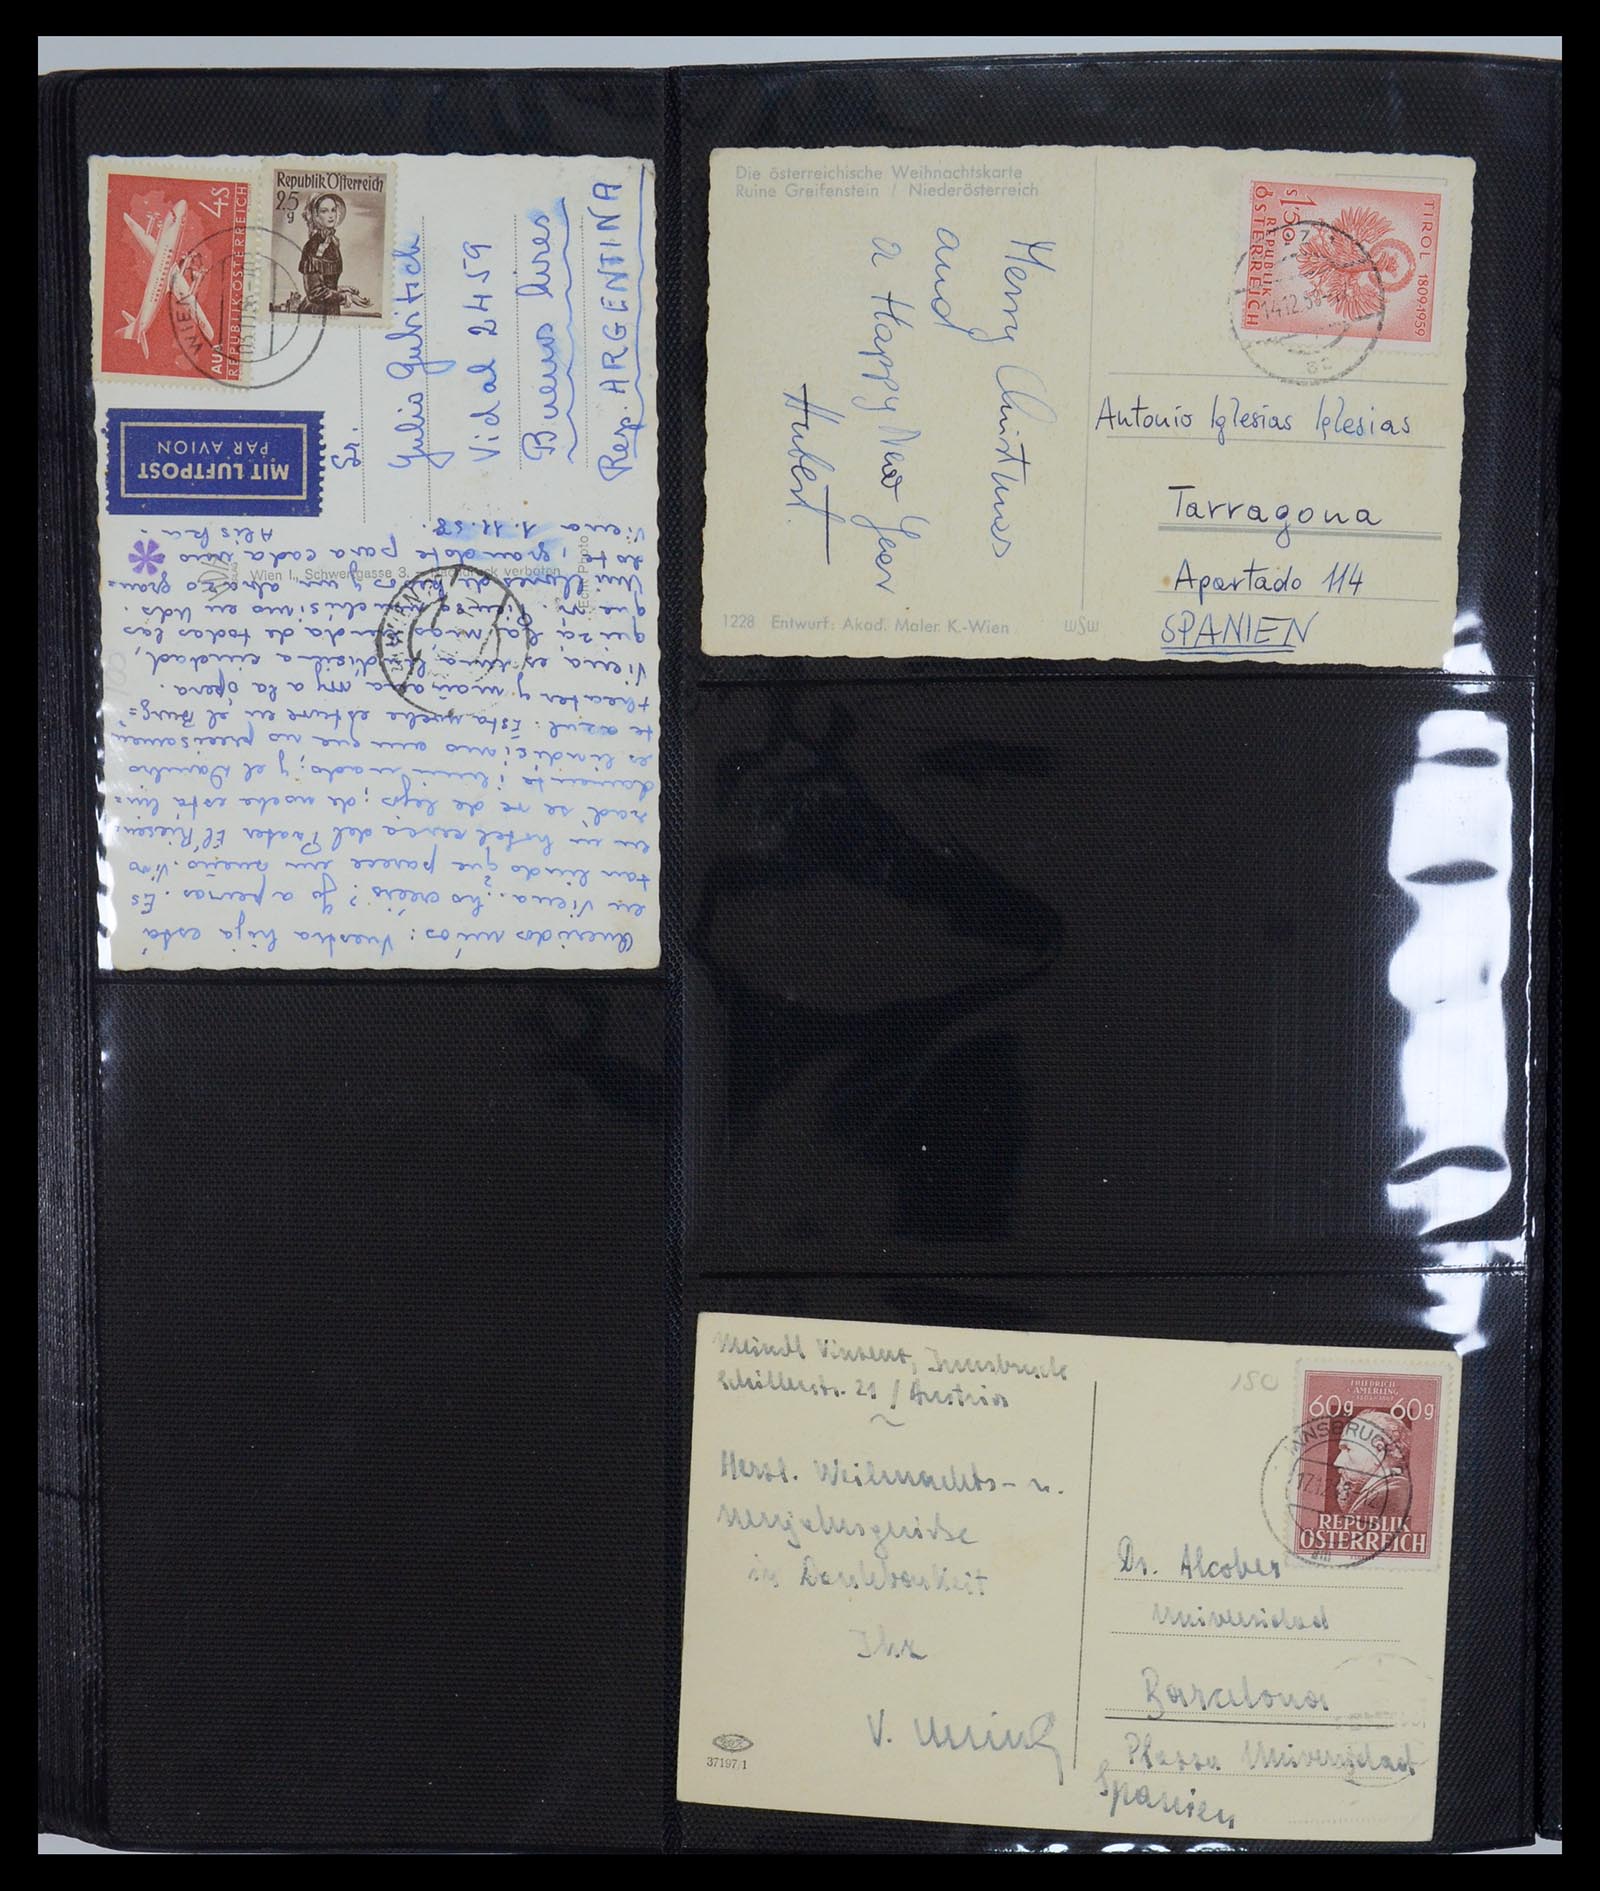 4S
REPUBLIK ÖSTERREICH
AUA
Republik Österreich
25
g
WIEN
MIT LUFTPOST
PAR AVION
Sr.
Julio Gubitsch
Vidal 2459
Buenos Aires
Rep. ARGENTINA
Wien I., Schwertgasse 3. – Nachdruck verboten
Echt Photo
Viena 1.11.58.
Queridos míos: Vuestra hija está
en Viena. Lo creéis? Yo apenas. Es
tan lindo que parece un sueño. Vivo
en un hotel cerca del Prater. El Riesen-
rad se ve de lejos; de noche está lin-
damente iluminado; y el Danubio
es lindísimo aun que no precisamen-
te azul. Esta noche estuve en el Burg=
theater y mañana voy a la ópera.
Viena es una lindísima ciudad,
quizá la más linda de todas las
que ví. Pienso muchísimo en Uds.
Mil millones de besos y un abrazo gran=
dote, grandote para cada uno
Die österreichische Weihnachtskarte
Ruine Greifenstein / Niederösterreich
Merry Christmas
and
a Happy New Year
Hubert
1228 Entwurf: Akad. Maler. K.-Wien
WSW
TIROL 1809 1959
S 1.50
REPUBLIK
ÖSTERREICH
14.12.59
Antonio Iglesias Iglesias
Tarragona
Apartado 114
SPANIEN
Meindl Vinzenz, Innsbruck
Schillerstr. 21 / Austria
Herzl. Weihnachts- u.
Neujahrsgrüße
in Dankbarkeit
Ihr
V. Meindl
37197/1
150
FRIEDRICH
AMERLING
60g 60g
REPUBLIK
ÖSTERREICH
INNSBRUCK
Dr. Alcober
Universidad
Barcelona
Plassa Universidad
Spanien